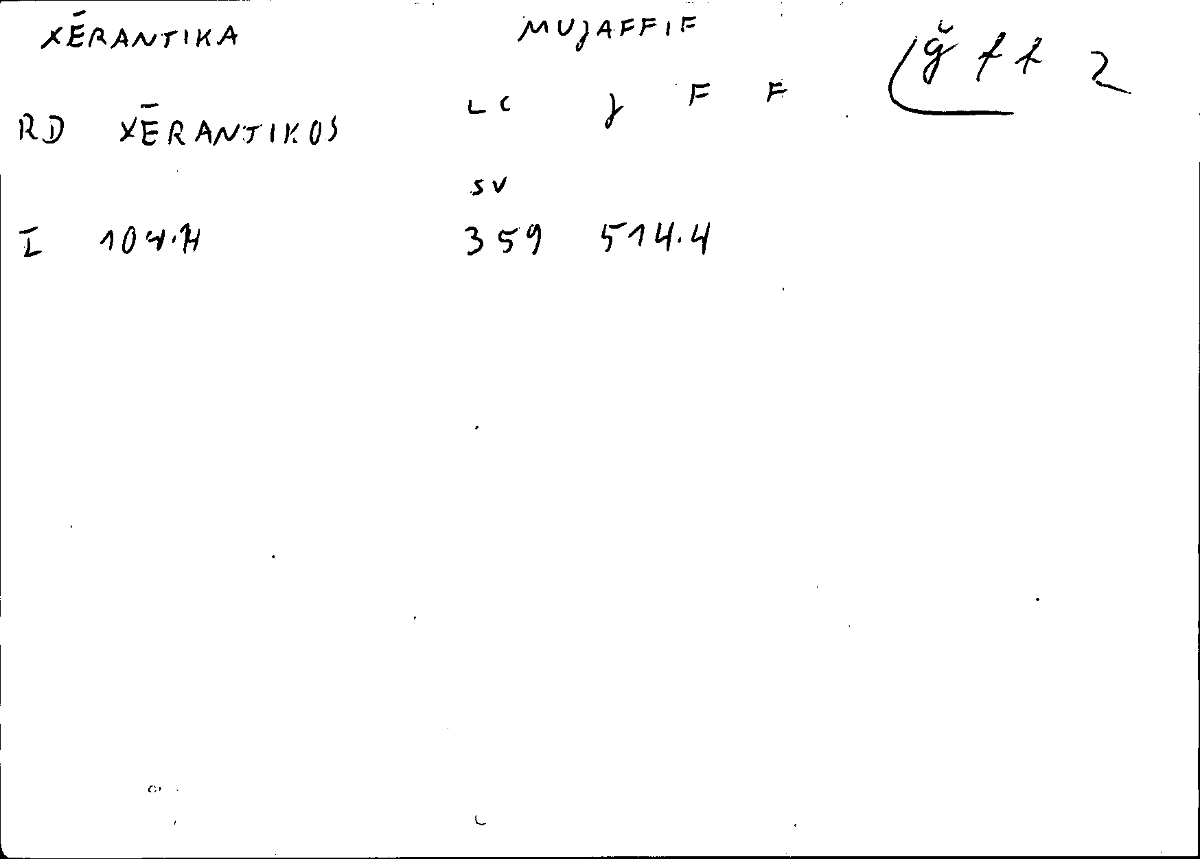 XĒRANTIKA MUJAFFIF ǧ f f 2
RD XĒRANTIKOS LC J F F
SV
I 104.11 359 514.4